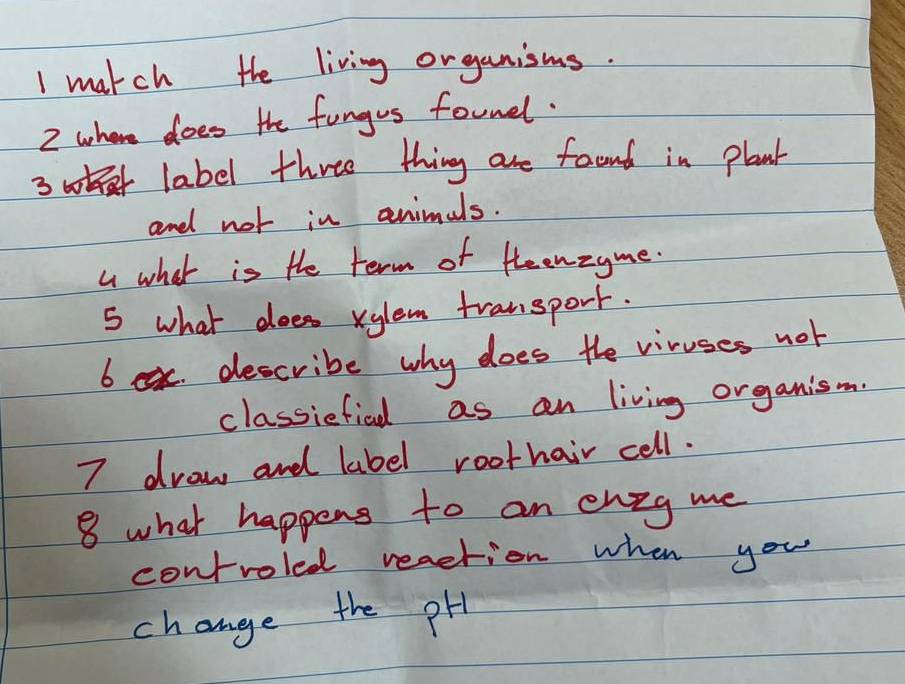 1 match the living organisms.
2 where does the fungus found.
3 what label three thing are found in plant
and not in animals.
4 what is the term of the enzyme.
5 what does xylem transport.
6 describe why does the viruses not
classiefied as an living organism.
7 draw and label root hair cell.
8 what happens to an enzyme
controled reaction when you
change the pH